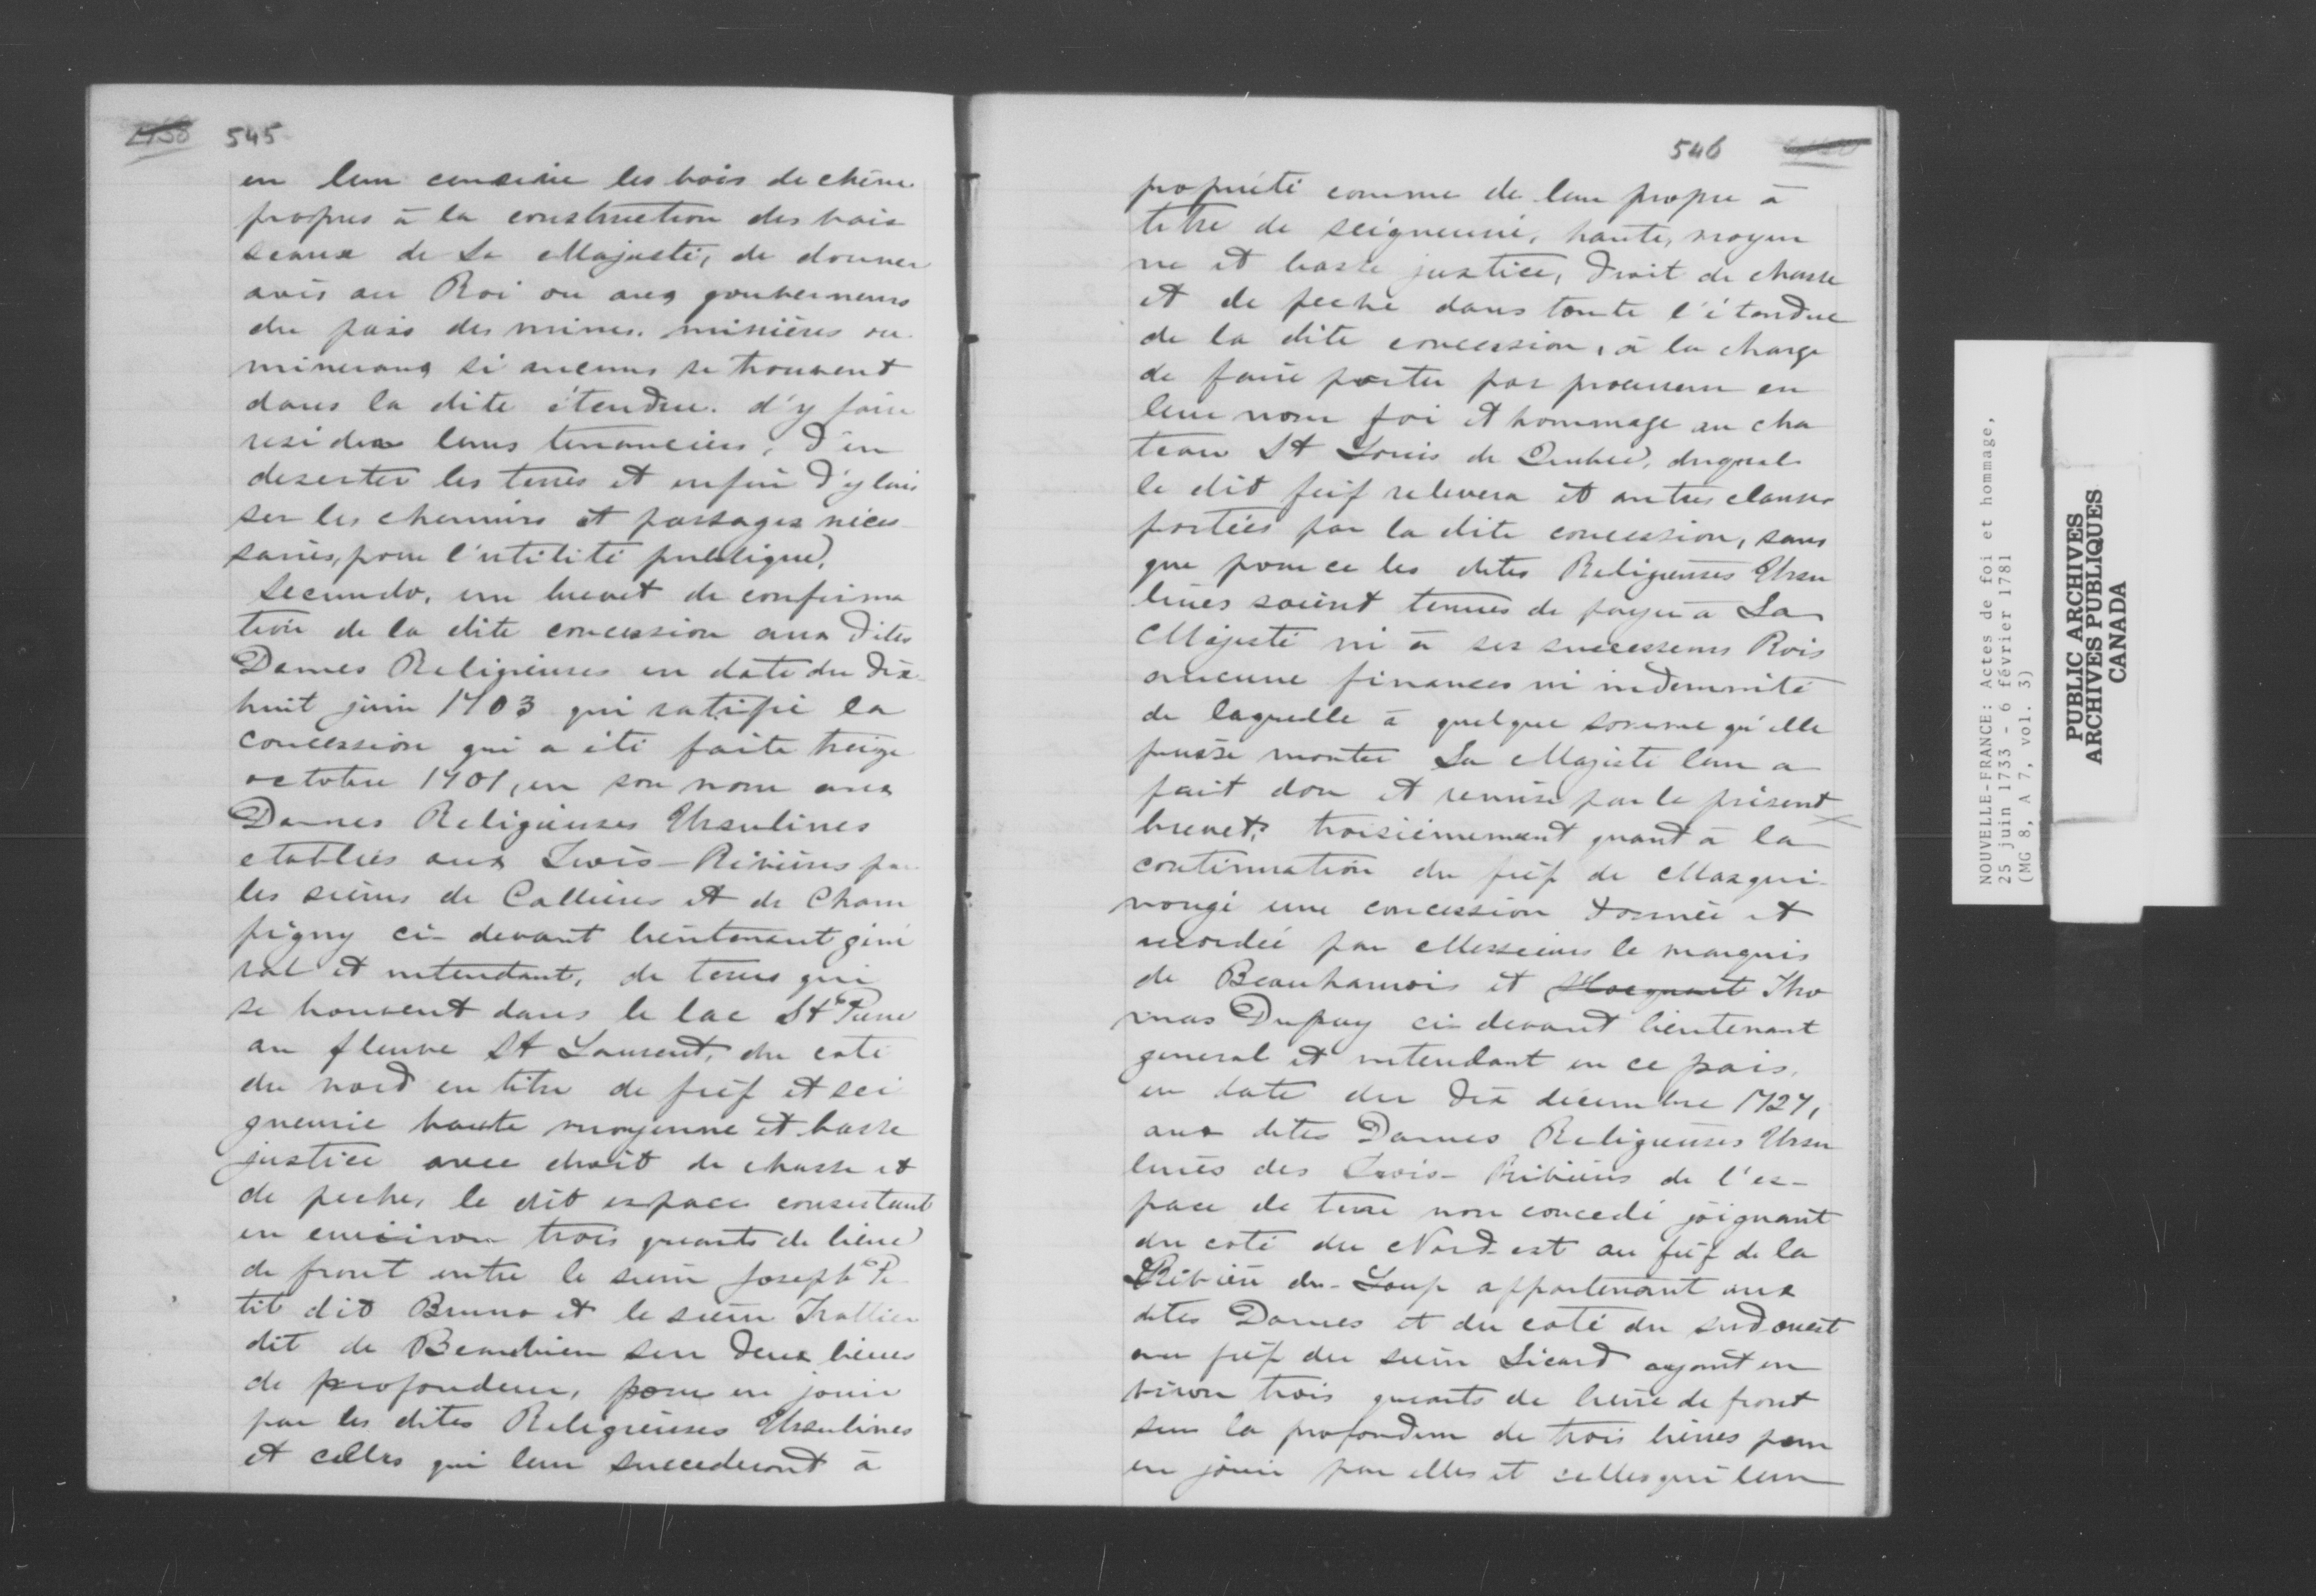 545
en leur censive les bois de chêne
propres à la construction des vais
seaux de Sa Majesté, de donner
avis au Roi ou aux gouverneurs
du païs des mines. minières ou
mineraux si aucuns se trouvent
dans la dite étendue. d'y faire
resider leurs tenanciers, d'en
deserter les terres et enfin d'y lais
ser les chemins et passages néces
saires, pour l'utilité publique.
Secundo, un brevet de confirma
tion de la dite concession aux dites
Dames Religieuses en date du dix
huit juin 1703 qui ratifie la
concession qui a été faite treize
octobre 1701, en son nom aux
Dames Religieuses Ursulines
etablies aux Trois-Rivieres par
les sieurs de Callieres et de Cham
pigny ci-devant lieutenant géné
ral et intendant, de terres qui
se trouvent dans le lac St Pierre
au fleuve St Laurent, du coté
du nord en titre de fief et sei
gneurie haute moyenne et basse
justice avec droit de chasse et
de peche, le dit espace consistant
en environ trois quarts de lieue
de front entre le sieur Joseph Pe
tit dit Bruno et le sieur Trottier
dit de Beaubien sur deux lieues
de profondeur, pour en jouir
par les dites Religieuses Ursulines
et celles qui leur succederont à
546
propriété comme de leur propre à
titre de seigneurie, haute, moyen
ne et basse justice, droit de chasse
et de peche dans toute l'étendue
de la dite concession, à la charge
de faire porter par procureur en
leur nom foi et hommage au cha
teau St Louis de Quebec, duquel
le dit fief relevera et autres clauses
portées par la dite concession, sans
que pour ce les dites Religieuses Ursu
lines soient tenues de payer à Sa
Majesté ni à ses successeurs Rois
aucune finances ni indemnité
de laquelle à quelque somme qu'elle
puisse monter Sa Majesté leur a
fait don et remise par le présent
brevet. troisiemement quant à la
continuation du fief de Masqui-
nongé une concession donnée et
accordée par Messieurs le marquis
de Beauharnois et Hocquart Tho
mas Dupuy ci-devant lieutenant
general et intendant en ce païs,
en date du dix décembre 1727,
aux dites Dames Religieuses Ursu
lines des Trois-Rivieres de l'es-
pace de terre non concedé joignant
du coté du Nord-est au fief de la
Riviere du-Loup appartenant aux
dites Dames et du coté du sud ouest
au fief du sieur Sicard ayant en
viron trois quarts de lieue de front
sur la profondeur de trois lieues pour
en jouir par elles et celles qui leur
NOUVELLE-FRANCE: Actes de foi et hommage,
25 juin 1733 - 6 février 1781
(MG 8, A 7, vol. 3)
PUBLIC ARCHIVES
ARCHIVES PUBLIQUES
CANADA